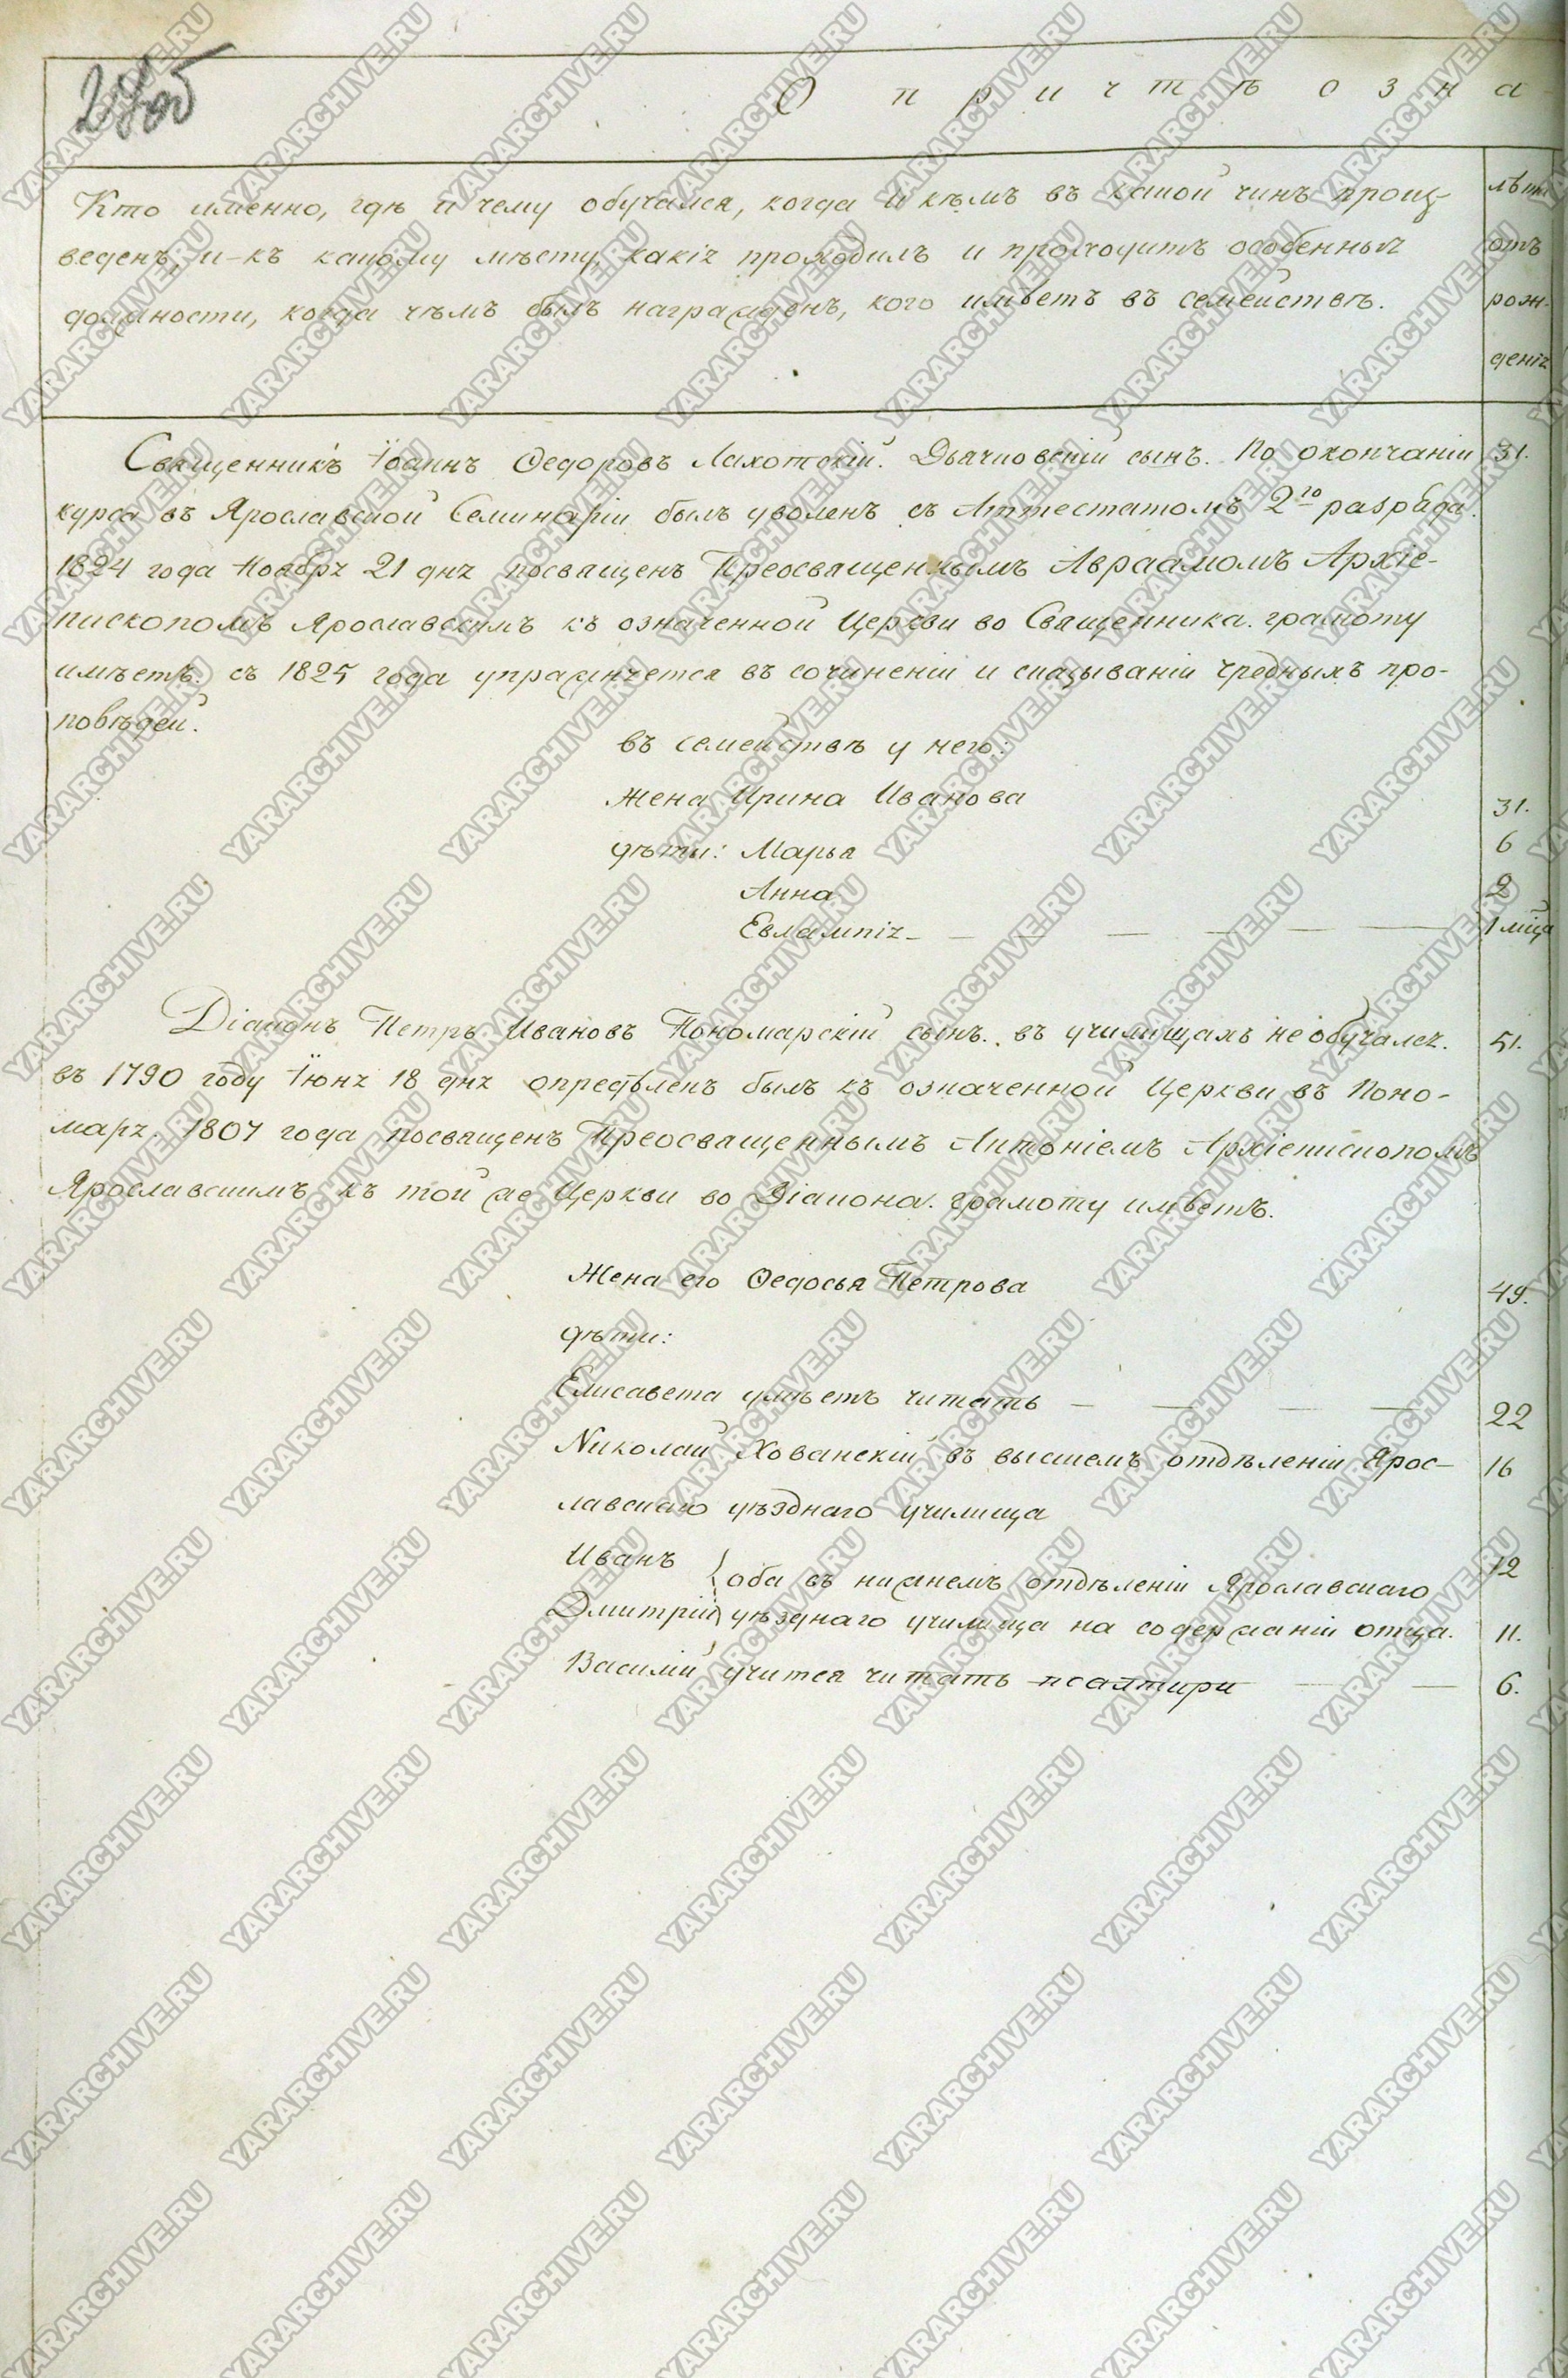 28об
О причтѣ озна
Кто именно, гдѣ и чему обучался, когда и кѣмъ въ какой чинъ произ-
веденъ, и къ какому мѣсту, какія проходилъ и проходитъ особенныя
должности, когда чѣмъ былъ награжденъ, кого имѣетъ въ семействѣ.
лѣта
отъ
рож-
денія
Священникъ Іоаннъ Ѳедоровъ Лахотскій. Дьячковскій сынъ. По окончаніи 31.
курса въ Ярославской Семинаріи былъ уволенъ съ Аттестатомъ 2го разряда.
1824 года Ноября 21 дня посвященъ Преосвященнымъ Авраамомъ Архіе-
пископомъ Ярославскимъ къ означенной Церкви во Священника. грамоту
имѣетъ. съ 1825 года упражняется въ сочиненіи и сказываніи чредныхъ про-
повѣдей.
въ семействѣ у него:
Жена Ирина Иванова 31.
дѣти: Марья 6
Анна 2
Евлампія 1 мца
Діаконъ Петръ Ивановъ Пономарскій сынъ. въ училищахъ не обучался. 51.
въ 1790 году Іюня 18 дня опредѣленъ былъ къ означенной Церкви въ Поно-
маря. 1807 года посвященъ Преосвященнымъ Антоніемъ Архіепископомъ
Ярославскимъ къ той же Церкви во Діакона. грамоту имѣетъ.
Жена его Ѳедосья Петрова 49.
дѣти:
Елисавета умѣетъ читать 22
Николай Хованскій въ высшемъ отдѣленіи Ярос- 16
лавскаго уѣзднаго училища
Иванъ 12
оба въ нижнемъ отдѣленіи Ярославскаго
Дмитрій уѣзднаго училища на содержаніи отца. 11.
Василій учится читать псалтири 6.
YARARCHIVE.RU